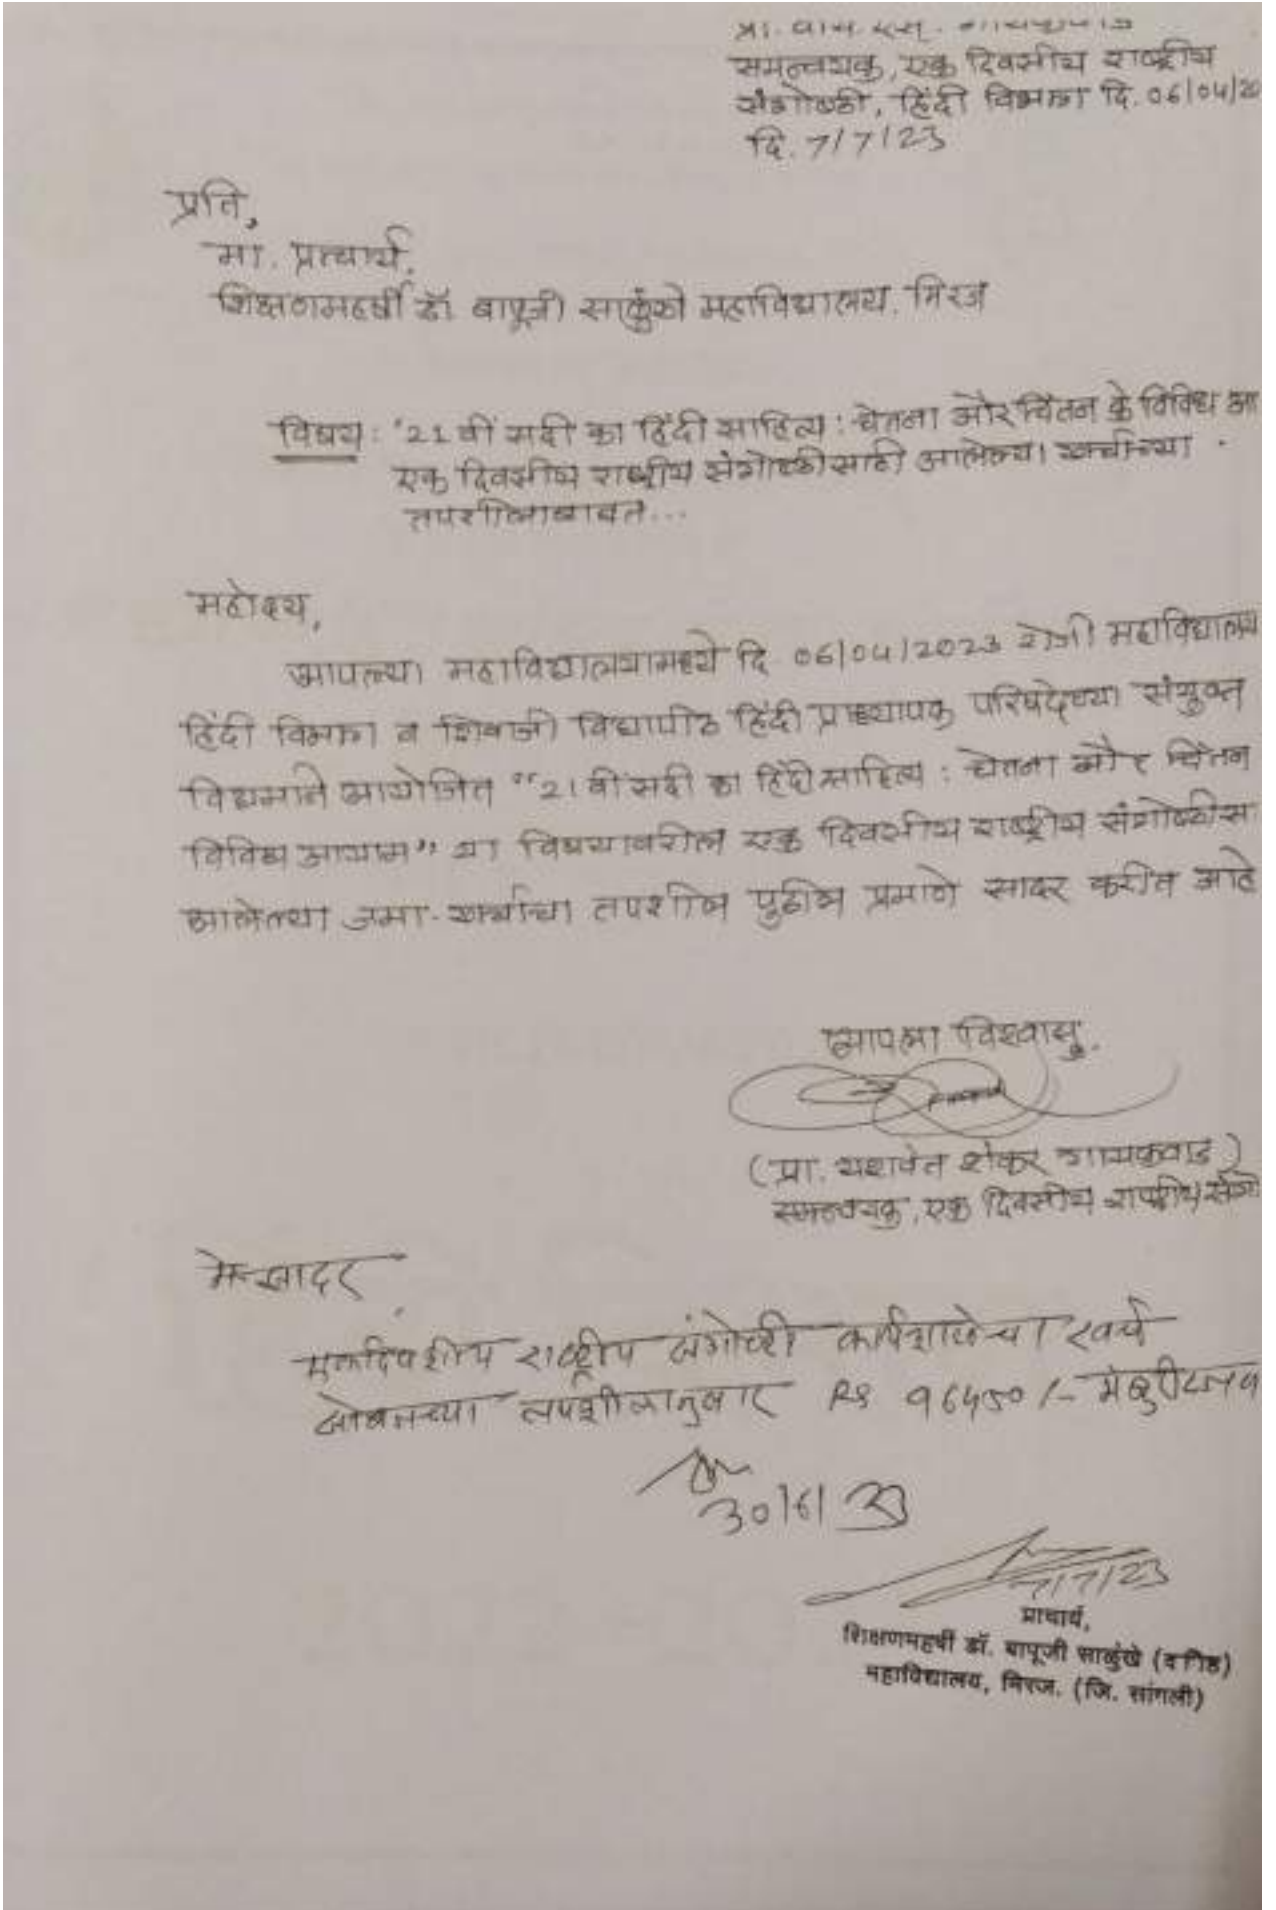 प्रा. वाय. एस. गायकवाड
समन्वयक, एक दिवसीय राष्ट्रीय
संगोष्ठी, हिंदी विभाग दि. 06/04/20
दि. 7/7/23
प्रति,
मा. प्राचार्य,
शिक्षणमहर्षी डॉ. बापूजी साळुंखे महाविद्यालय. मिरज
विषय : '21 वीं सदी का हिंदी साहित्य : चेतना और चिंतन के विविध आ
एक दिवसीय राष्ट्रीय संगोष्ठीसाठी आलेल्या खर्चाच्या
तपशीलाबाबत...
महोदय,
आपल्या महाविद्यालयामध्ये दि. 06/04/2023 रोजी महाविद्यालय
हिंदी विभाग व शिवाजी विद्यापीठ हिंदी प्राध्यापक परिषदेच्या संयुक्त
विद्यमाने आयोजित "21 वीं सदी का हिंदी साहित्य : चेतना और चिंतन
विविध आयाम" या विषयावरील एक दिवसीय राष्ट्रीय संगोष्ठीस
आलेल्या जमा-खर्चाचा तपशील पुढील प्रमाणे सादर करीत आहे
आपला विश्वासू.
(प्रा. यशवंत शंकर गायकवाड)
समन्वयक, एक दिवसीय राष्ट्रीय संगो
मे. सादर
एकदिवशीय राष्ट्रीय संगोष्ठी कार्यशाळेचा खर्च
सोबतच्या तपशीलानुसार Rs 96450/-
30/6/23
7/7/23
प्राचार्य,
शिक्षणमहर्षी डॉ. बापूजी साळुंखे (वरिष्ठ)
महाविद्यालय, मिरज. (जि. सांगली)